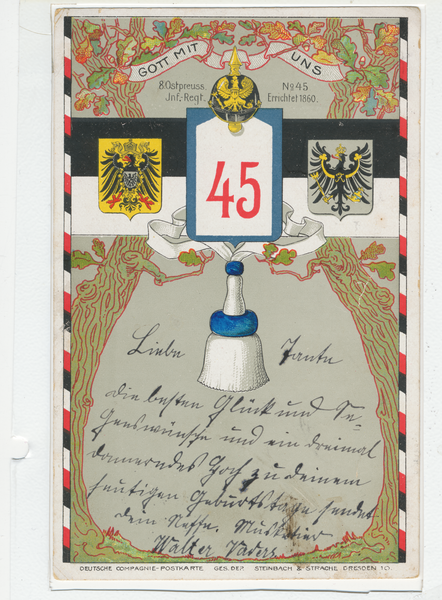 GOTT MIT UNS
8. Ostpreuss. No 45
Jnf.-Regt. Errichtet 1860.
45
Liebe Tante
Die besten Glück und Se-
genswünsche und ein dreimal
donnerndes Hoch zu deinem
heutigen Geburtstage sendet
dein Neffe. Musketier
Walter
DEUTSCHE COMPAGNIE-POSTKARTE GES. DEP. STEINBACH & STRACHE DRESDEN 10.